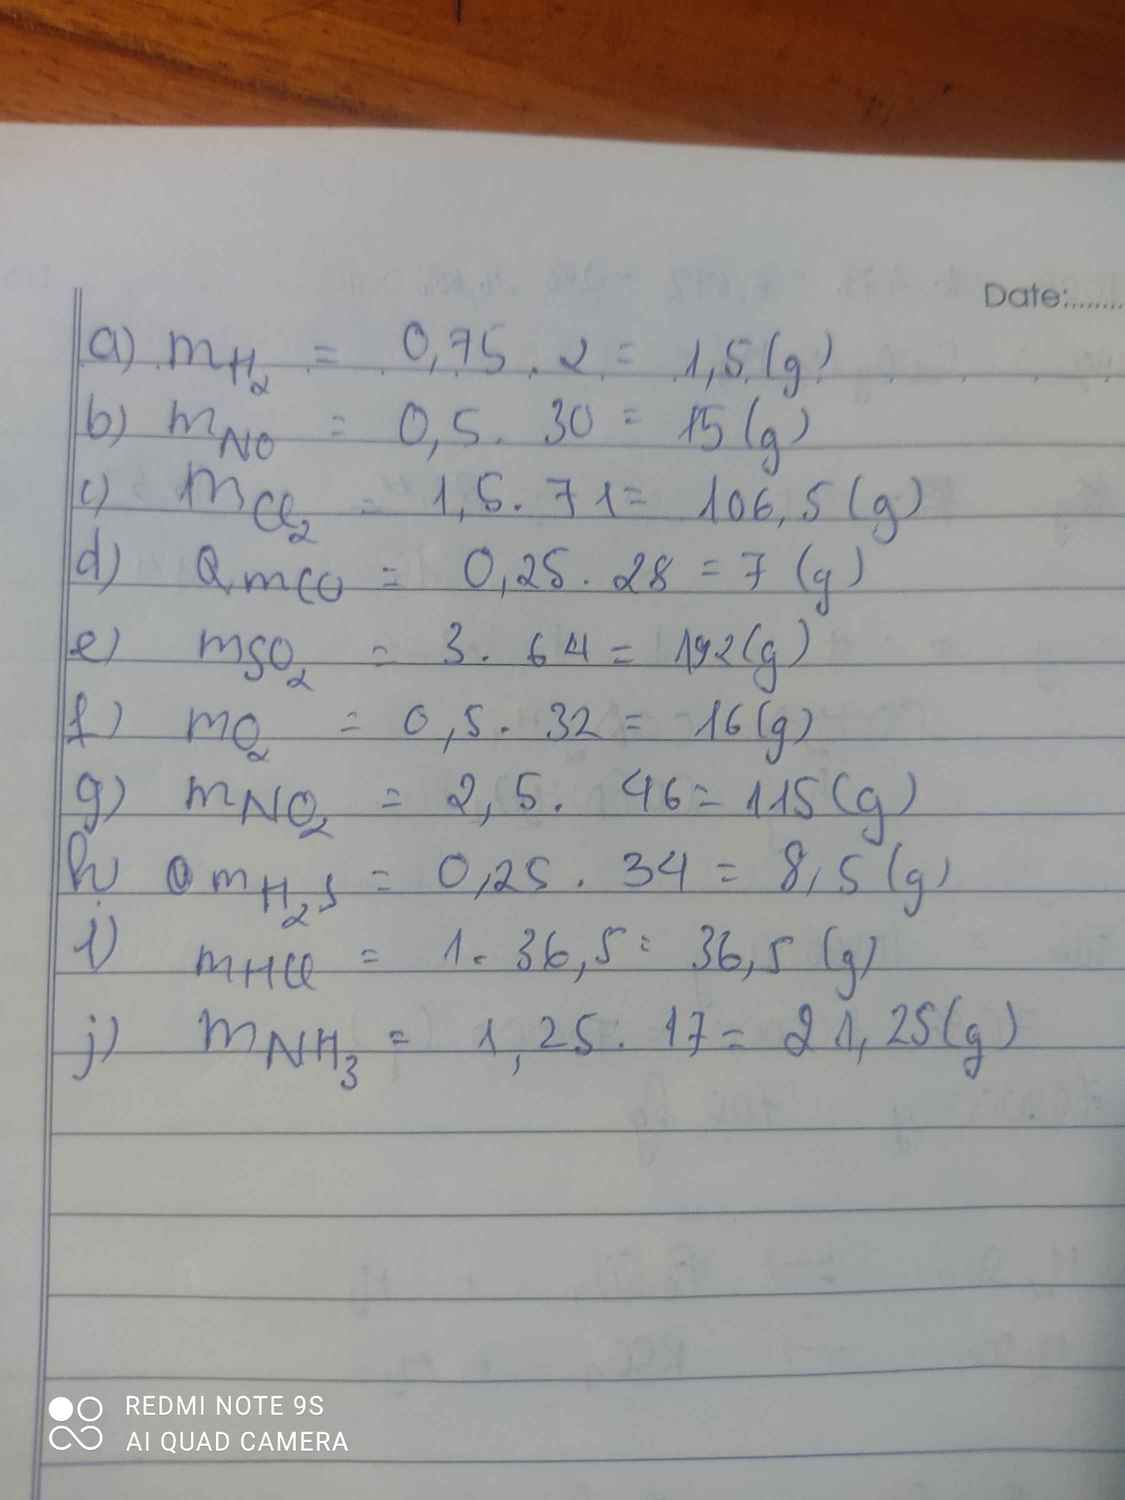 Date:........
a) mH2 = 0,75 . 2 = 1,5 (g)
b) mNO = 0,5 . 30 = 15 (g)
c) mCl2 = 1,5 . 71 = 106,5 (g)
d) mCO = 0,25 . 28 = 7 (g)
e) mSO2 = 3 . 64 = 192 (g)
f) mO2 = 0,5 . 32 = 16 (g)
g) mNO2 = 2,5 . 46 = 115 (g)
h) mH2S = 0,25 . 34 = 8,5 (g)
i) mHCl = 1 . 36,5 = 36,5 (g)
j) mNH3 = 1,25 . 17 = 21,25 (g)
REDMI NOTE 9S
AI QUAD CAMERA